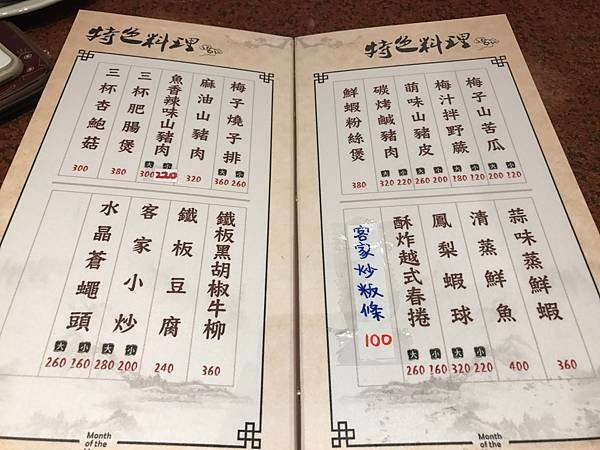 特色料理
梅子山苦瓜
大 小
200 120
梅汁拌野蕨
大 小
180 120
萌味山豬皮
大 小
260 200
碳烤鹹豬肉
大 小
320 220
鮮蝦粉絲煲
380
蒜味蒸鮮蝦
360
清蒸鮮魚
400
鳳梨蝦球
大 小
320 220
酥炸越式春捲
大 小
260 160
客家炒粄條
100
Month
of the
特色料理
梅子燒子排
大 小
360 260
麻油山豬肉
320
魚香辣味山豬肉
大 小
300 220
三杯肥腸煲
380
三杯杏鮑菇
300
鐵板黑胡椒牛柳
360
鐵板豆腐
240
客家小炒
大 小
280 200
水晶蒼蠅頭
大 小
260 160
Month
of the